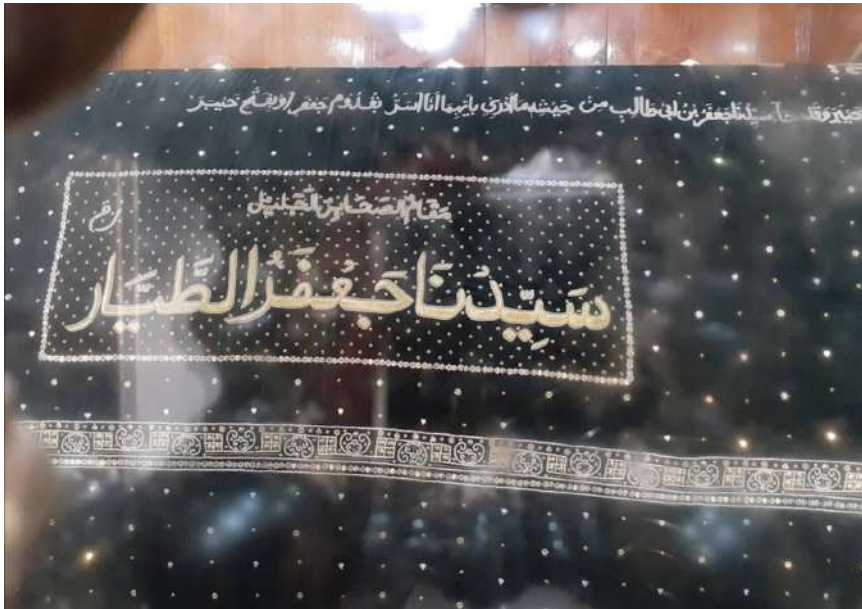 سيدنا جعفر بن ابي طالب من حبشه ما أدري بأيهما أنا أسر بقدوم جعفر او بفتح خيبر
مقام الصحابي الجليل
سَيِّدُنَا جَعْفَرُ الطَّيَّار